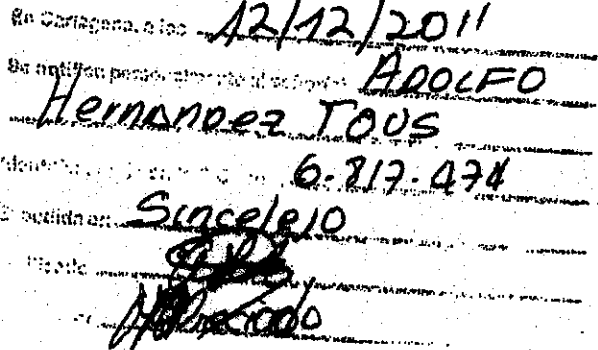 En Cartagena, a los 12/12/2011
Se notifica personalmente al señor ADOLFO
Hernandez TOUS
6.817.474
Expedida en Sincelejo